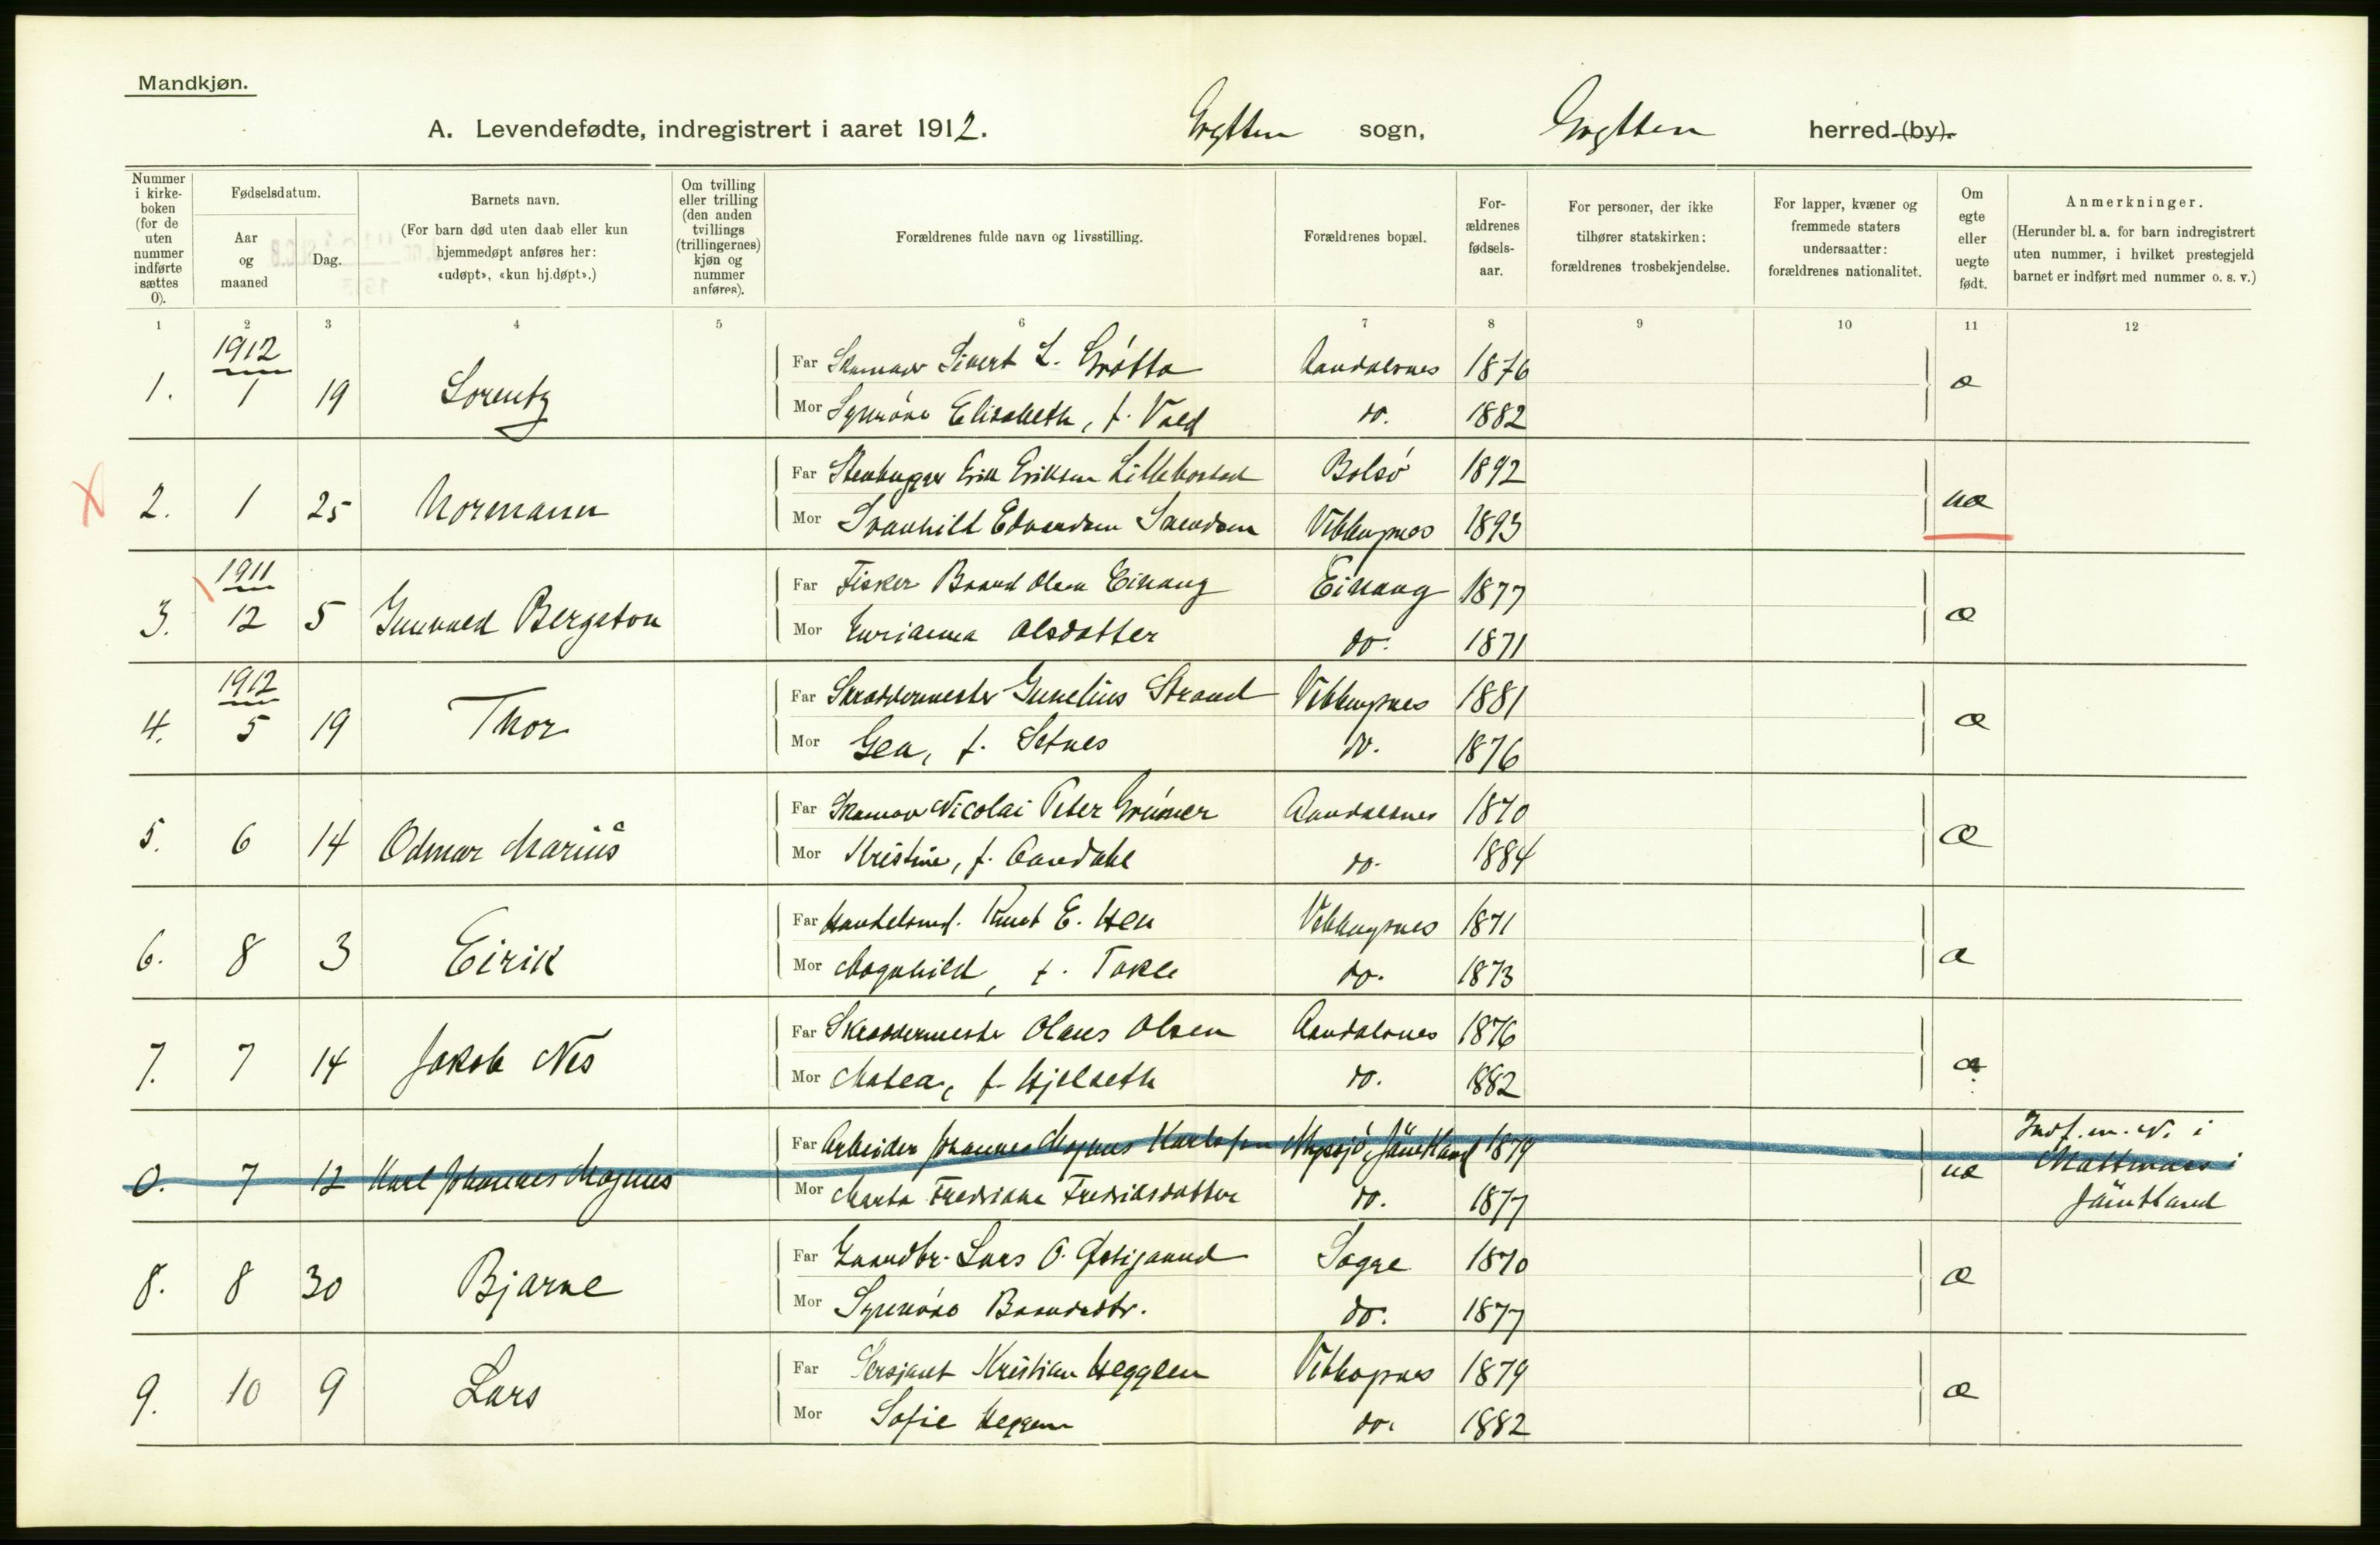 Mandkjøn.
A. Levendefødte, indregistrert i aaret 1912. Grytten sogn, Grytten herred (by).
Nummer i kirkeboken (for de uten nummer indførte sættes 0).
Fødselsdatum.
Aar og maaned
Dag.
Barnets navn.
(For barn død uten daab eller kun hjemmedøpt anføres her: «udøpt», «kun hj.døpt».)
Om tvilling eller trilling (den anden tvillings (trillingernes) kjøn og nummer anføres).
Forældrenes fulde navn og livsstilling.
Forældrenes bopæl.
Forældrenes fødselsaar.
For personer, der ikke tilhører statskirken: forældrenes trosbekjendelse.
For lapper, kvæner og fremmede staters undersaatter: forældrenes nationalitet.
Om egte eller uegte født.
Anmerkninger.
(Herunder bl. a. for barn indregistrert uten nummer, i hvilket prestegjeld barnet er indført med nummer o. s. v.)
1 2 3 4 5 6 7 8 9 10 11 12
1912
1. 1 19 Lorentz Far Skomaker Sivert L. Grötta Aandalsnes 1876 æ
Mor Synnöve Elisabeth, f. Vold do. 1882
2. 1 25 Normann Far Stenhugger Erik Eriksen Lillebostad Bolsö 1892 uæ
Mor Svanhild Edvardsen Veblungsnes 1893
1911
3. 12 5 Gunvald Bergston Far Fisker Baard Olsen Einang Einang 1877 æ
Mor Olsdatter do. 1871
1912
4. 5 19 Thor Far Skræddermester Gunelius Strand Veblungsnes 1881 æ
Mor Gea, f. Setnes do. 1876
5. 6 14 Odmar Marius Far Skomaker Nicolai Peter Grüner Aandalsnes 1870 æ
Mor Kristine, f. Aandahl do. 1884
6. 8 3 Eirik Far Handelsmd. Knut E. Hen Veblungsnes 1871 æ
Mor Magnhild, f. Takle do. 1873
7. 7 14 Jakob Nes Far Skræddermester Olaus Olsen Aandalsnes 1876 æ
Mor Matea, f. Hjelseth do. 1882
0. 7 12 Karl Johannes Magnus Far Arbeider Johannes Magnus Karlsson Jämtland 1879 uæ Indf. m. N. i
Mor Marta Fredrika Fredriksdatter do. 1877 Mattmar i
Jämtland
8. 8 30 Bjarne Far Gaardbr. Lars O. Östigaard Sogge 1870 æ
Mor Synnöve Baardsdtr. do. 1877
9. 10 9 Lars Far Sersjant Kristian Heggem Veblungsnes 1879 æ
Mor Sofie Heggem do. 1882